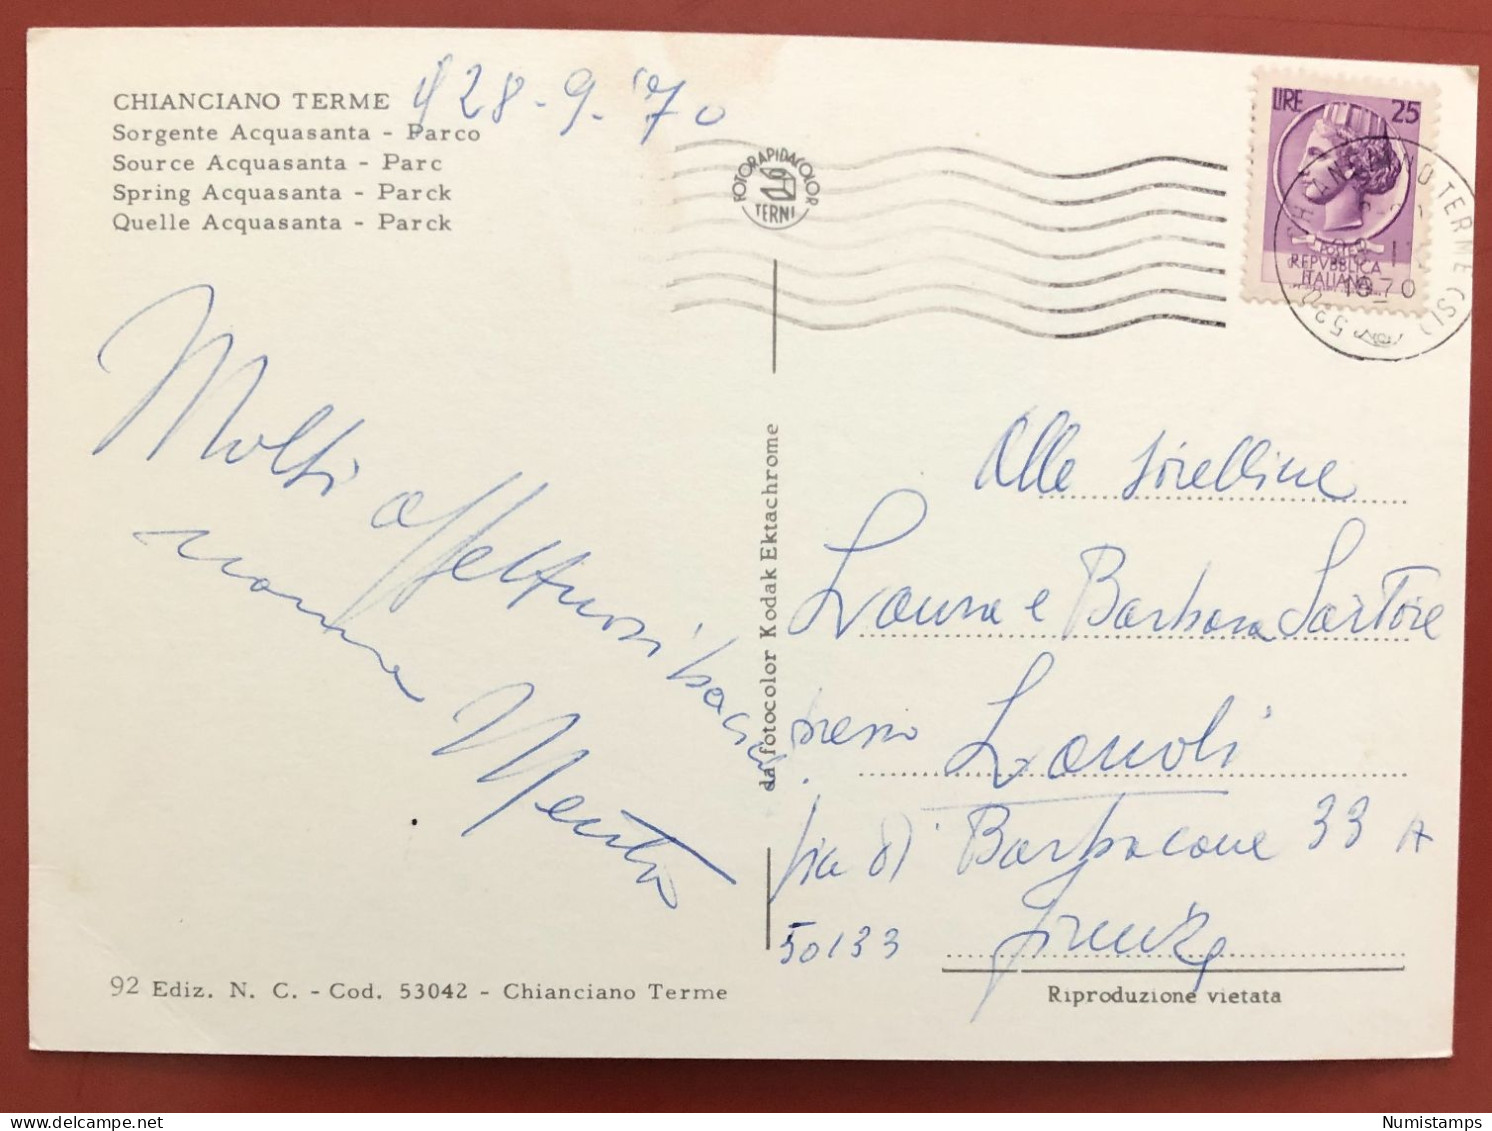 CHIANCIANO TERME
Sorgente Acquasanta - Parco
Source Acquasanta - Parc
Spring Acquasanta - Parck
Quelle Acquasanta - Parck
28-9-'70
FOTORAPIDACOLOR
TERNI
LIRE 25
POSTE
REPVBBLICA
ITALIANA
CHIANCIANO TERME (SI)
1970
Molti affettuosi baci
nonna
da fotocolor Kodak Ektachrome
Alle sorelline
Laura e Barbara Sartore
presso Lanoli
Via di Barbacane 33 A
50133 Firenze
92 Ediz. N. C. - Cod. 53042 - Chianciano Terme
Riproduzione vietata
Numistamps.com